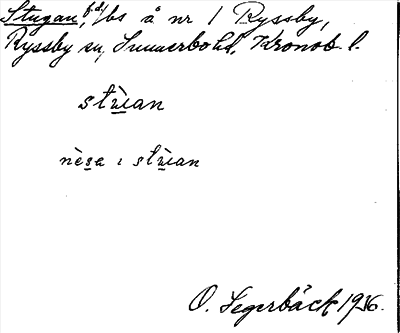 Stugan, f.d./bs å nr 1 Ryssby,
Ryssby sn, Sunnerbo hd, Kronob. l.
stὼan
nè̱sa ı stὼan
O. Segerbäck 1936.